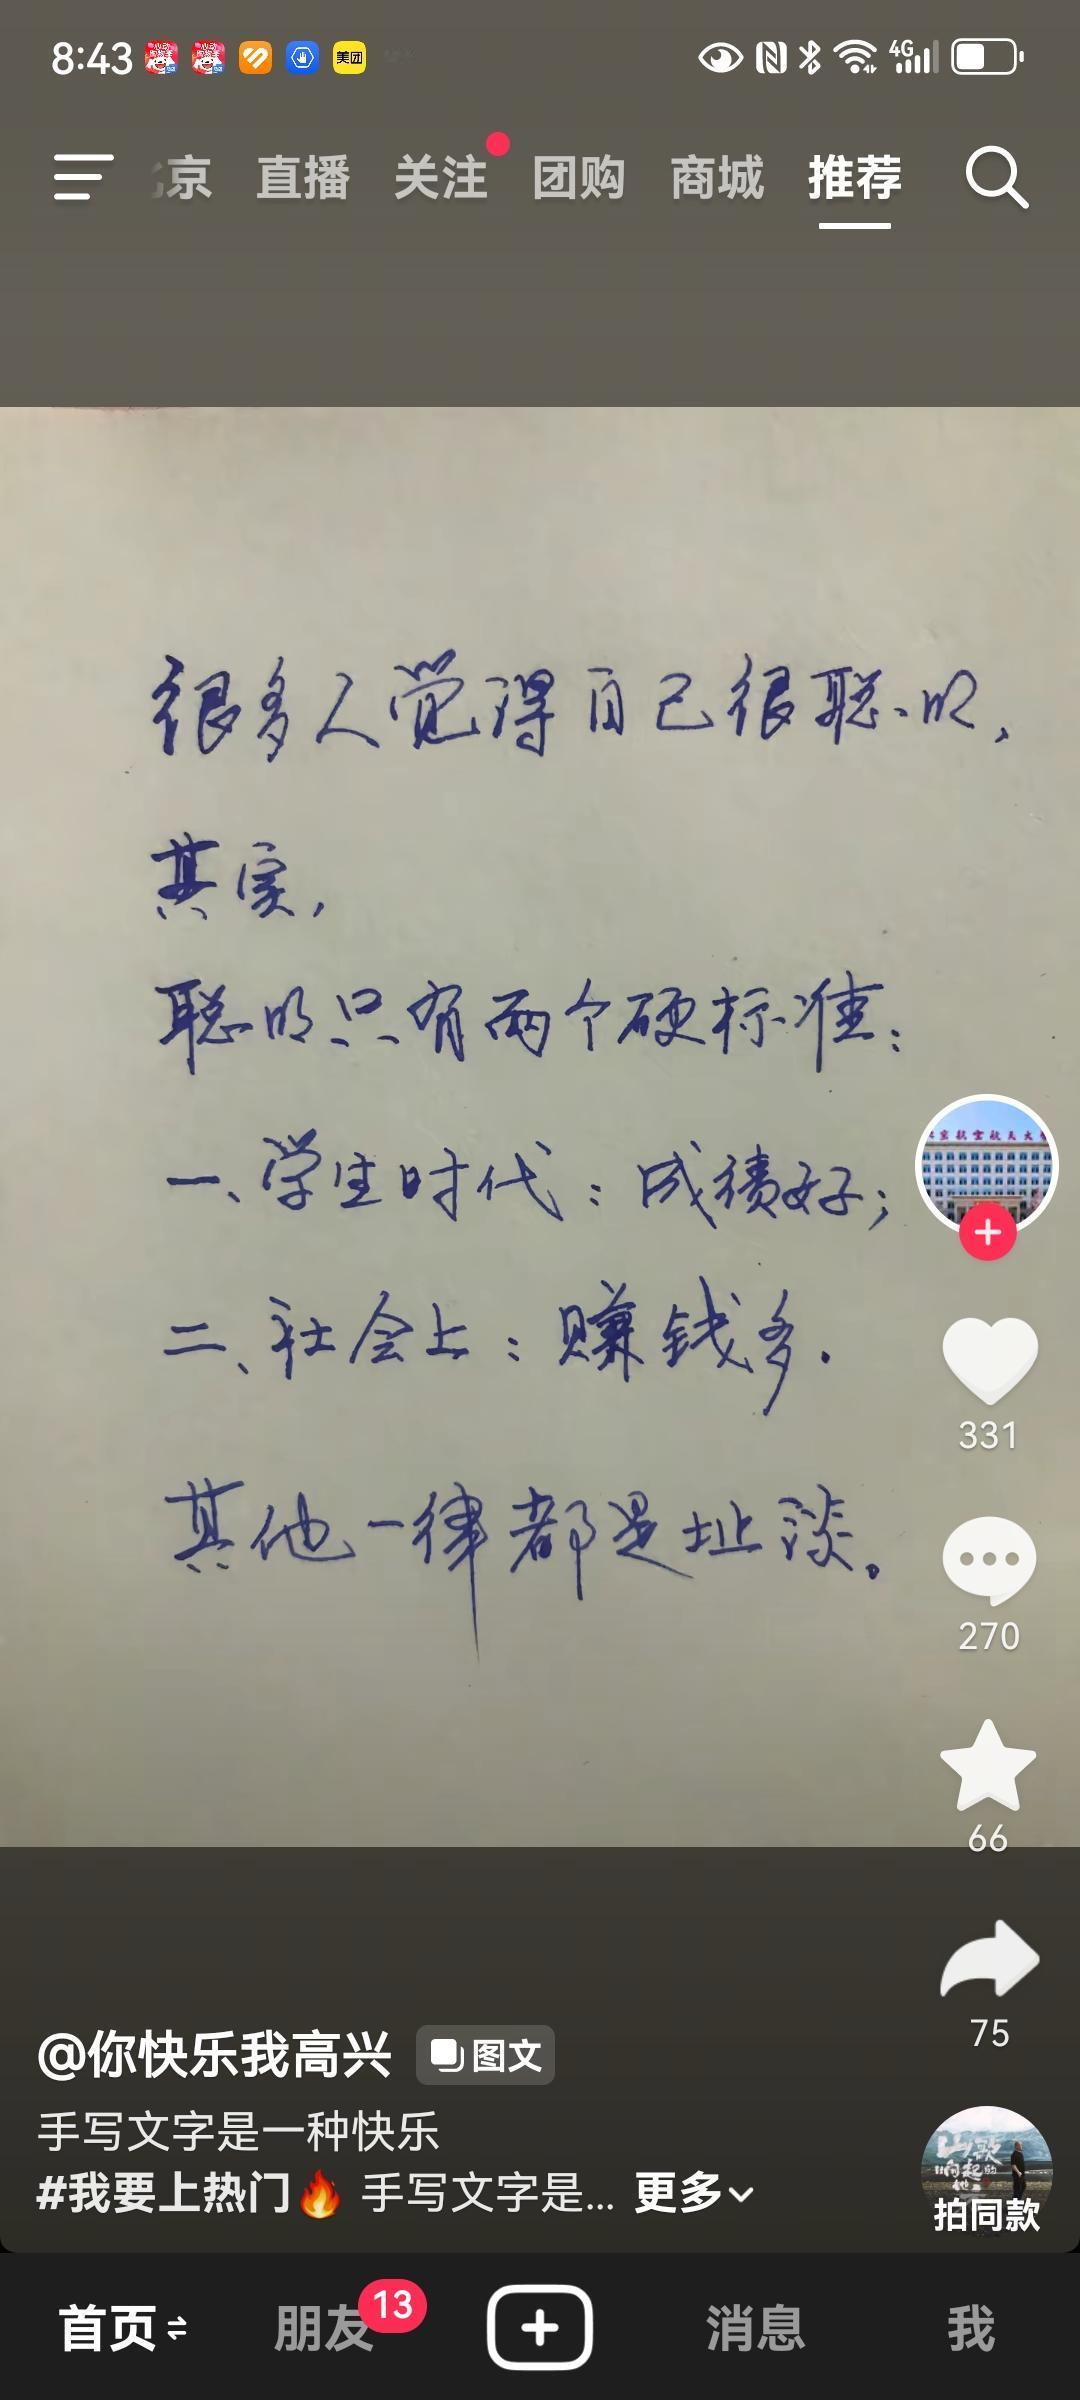 8:43
美团
4G
京 直播 关注 团购 商城 推荐
很多人觉得自己很聪明，
其实，
聪明只有两个硬标准：
一、学生时代：成绩好；
二、社会上：赚钱多．
其他一律都是址谈。
331
270
66
75
@你快乐我高兴 图文
手写文字是一种快乐
#我要上热门🔥 手写文字是... 更多
拍同款
首页 朋友 13 消息 我